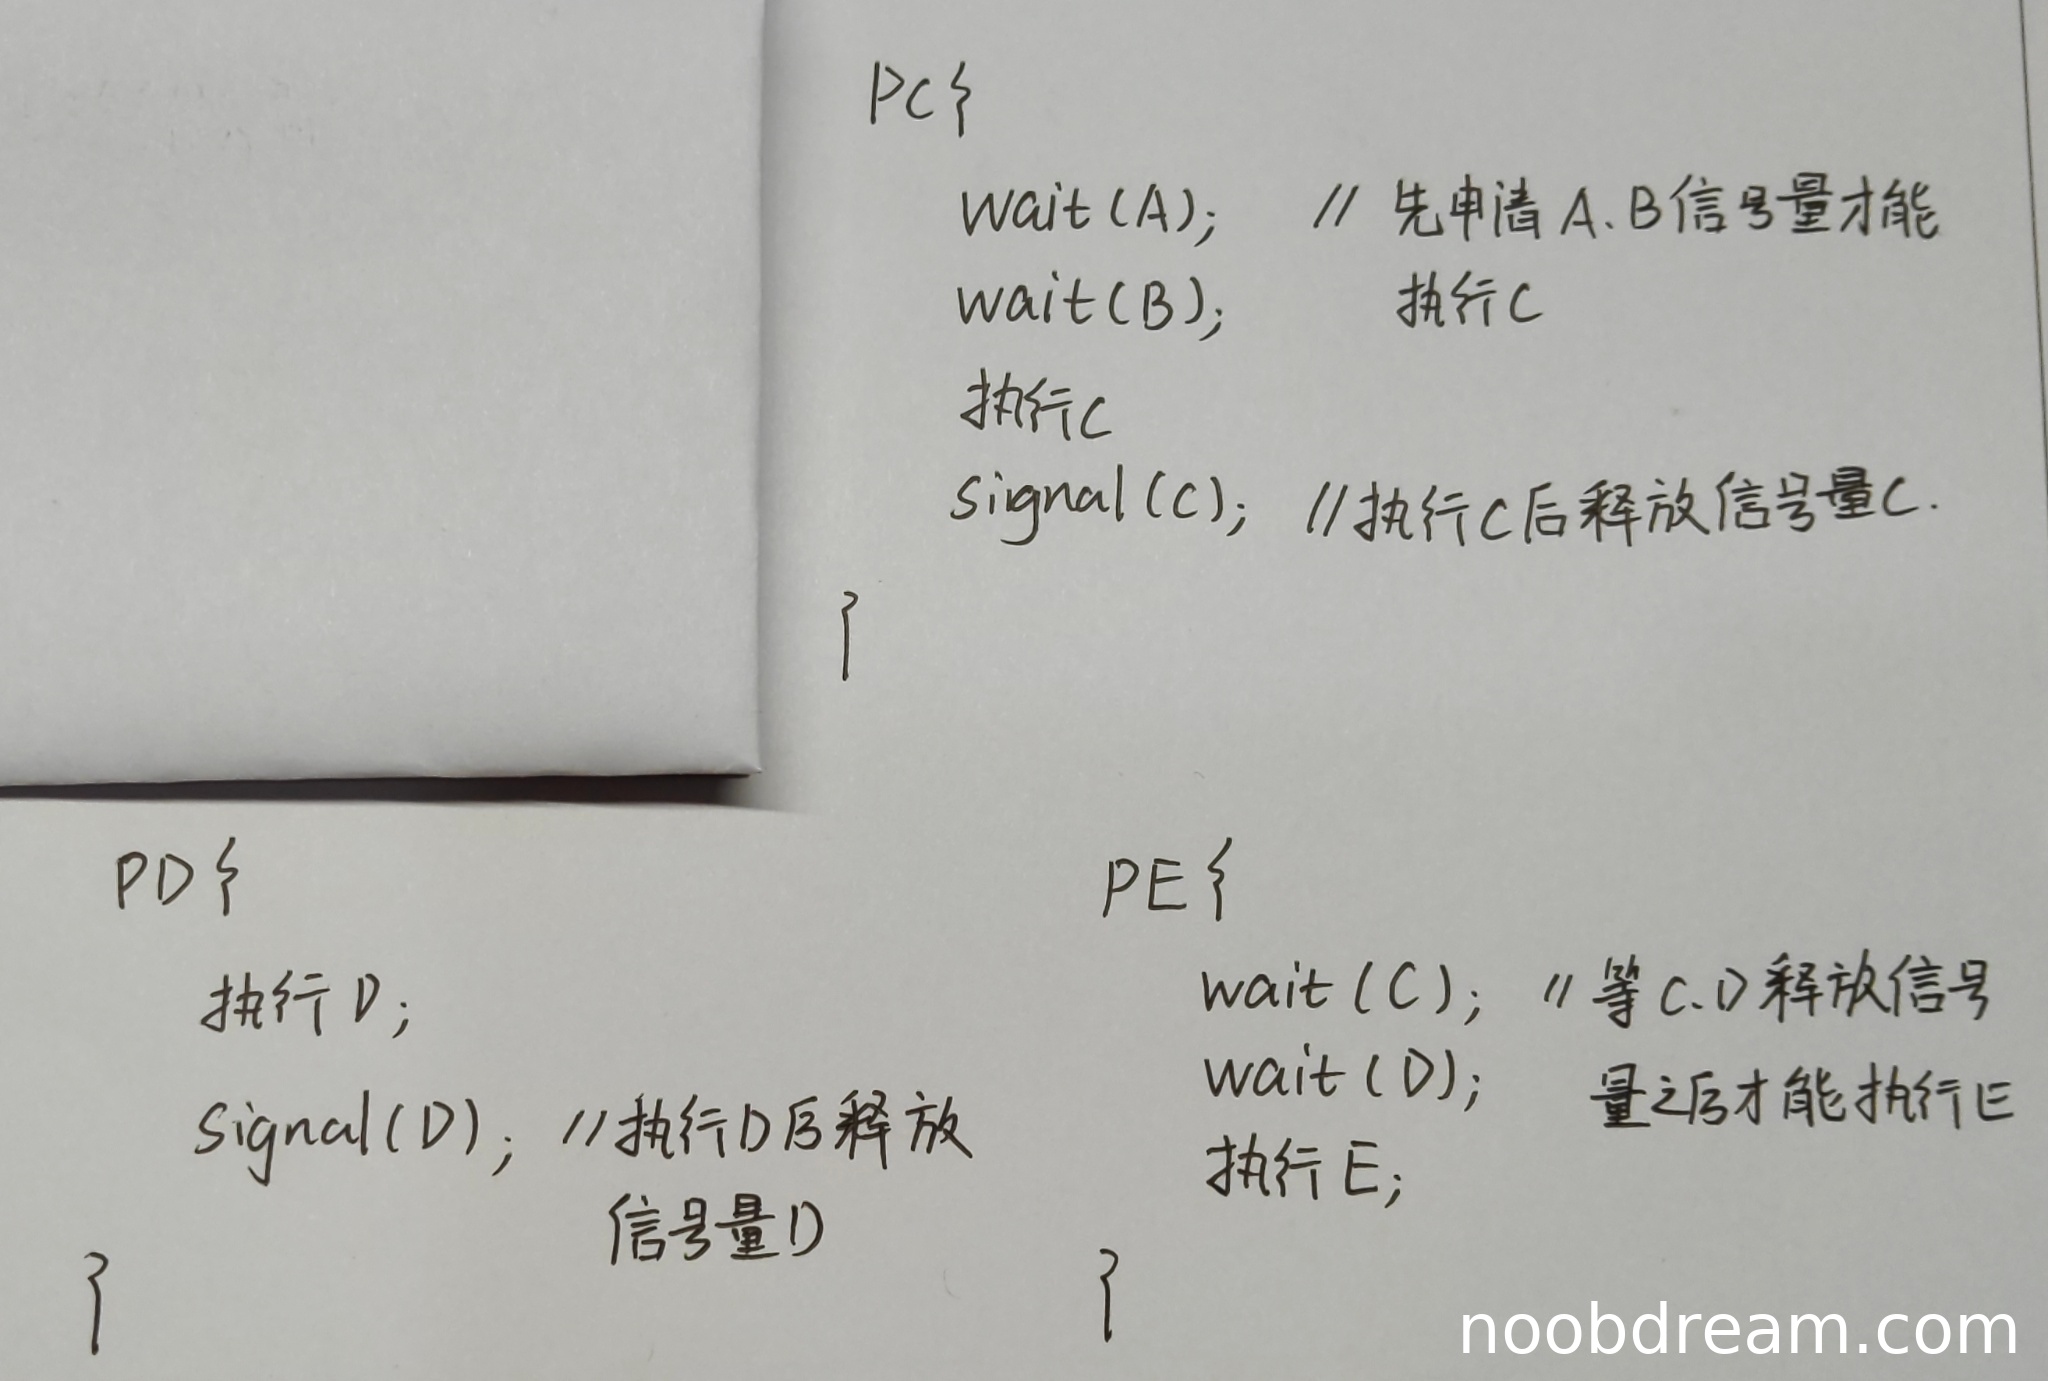 PC{
wait(A); // 先申请A.B信号量才能
wait(B); 执行C
执行C
signal(C); //执行C后释放信号量C.
}
PD{
执行D;
signal(D); //执行D后释放
信号量D
}
PE{
wait(C); // 等C.D释放信号
wait(D); 量之后才能执行E
执行E;
}
noobdream.com